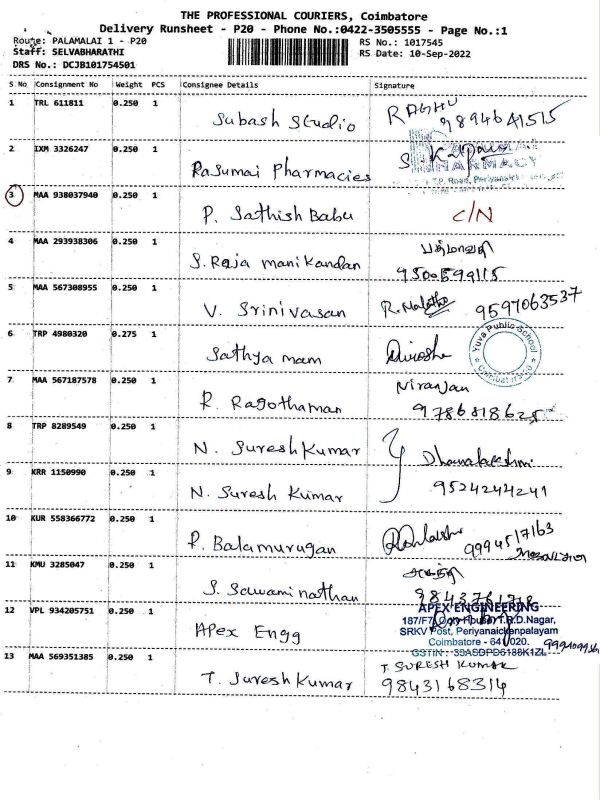 THE PROFESSIONAL COURIERS, Coimbatore
Delivery Runsheet - P20 - Phone No.:0422-3505555 - Page No.:1
Route: PALAMALAI 1 - P20
Staff: SELVABHARATHI
DRS No.: DCJB101754501
RS No.: 1017545
RS Date: 10-Sep-2022
S No Consignment No Weight PCS Consignee Details Signature
1 TRL 611811 0.250 1 Subash Studio RAGHU
9894641515
2 IXM 3326247 0.250 1 Rasumai Pharmacies
3 MAA 938037940 0.250 1 P. Sathish Babu C/N
4 MAA 293938306 0.250 1 S. Raja manikandan பத்மாவதி
9500599115
5 MAA 567308955 0.250 1 V. Srinivasan 9597063537
6 TRP 4980320 0.275 1 Sathya mam
Yuva Public School
Coimbatore
7 MAA 567187578 0.250 1 R. Ragothaman Niranjan
9786818625
8 TRP 8289549 0.250 1 N. Suresh Kumar
9 KRR 1150990 0.250 1 N. Suresh Kumar 9524244241
10 KUR 558366772 0.250 1 P. Balamurugan
11 KMU 3285047 0.250 1 S. Sawaminathan
12 VPL 934205751 0.250 1 Apex Engg
APEX ENGINEERING
T.R.D.Nagar,
SRKV Post, Periyanaickenpalayam
Coimbatore - 641 020.
13 MAA 569351385 0.250 1 T. Suresh Kumar T. SURESH KUMAR
9843168314